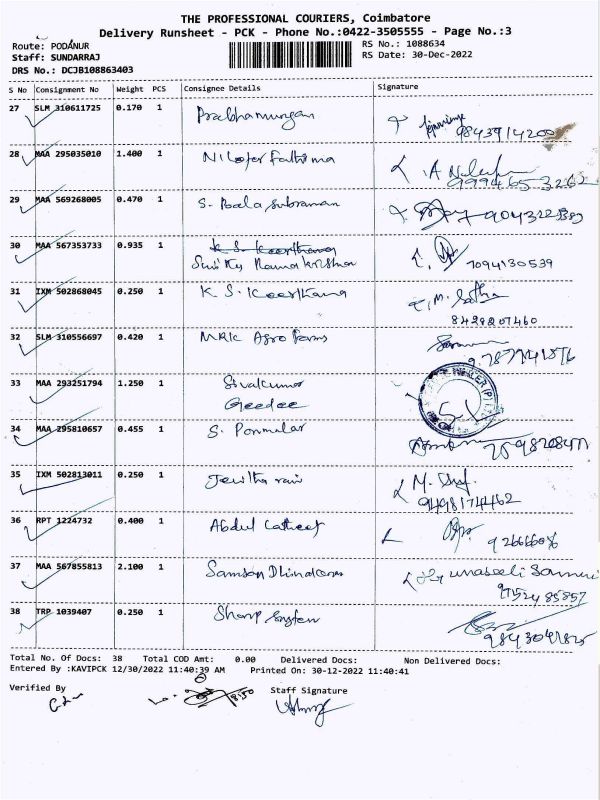 THE PROFESSIONAL COURIERS, Coimbatore
Delivery Runsheet - PCK - Phone No.:0422-3505555 - Page No.:3
Route: PODANUR RS No.: 1088634
Staff: SUNDARRAJ RS Date: 30-Dec-2022
DRS No.: DCJB108863403
S No Consignment No Weight PCS Consignee Details Signature
27 SLM 310611725 0.170 1 Prabhamurugan
9843914200
28 MAA 295035010 1.400 1 Nilofer Fathima
9994653262
29 MAA 569268005 0.470 1 S. Bala Subraman
30 MAA 567353733 0.935 1 K S. Keerthana
Ramakrishna 7094130539
31 IXM 502868045 0.250 1 K S. Keerthana M.
8429207460
32 SLM 310556697 0.420 1 MRK Agro Farms
33 MAA 293251794 1.250 1 Sivakumar
Geedee
34 MAA 295810657 0.455 1 S. Ponmalar
35 IXM 502813011 0.250 1 M.
9498174462
36 RPT 1224732 0.400 1 Abdul Latheef
37 MAA 567855813 2.100 1 Samson
9152485857
38 TRP 1039407 0.250 1 Sharp System
9843041825
Total No. Of Docs: 38 Total COD Amt: 0.00 Delivered Docs: Non Delivered Docs:
Entered By :KAVIPCK 12/30/2022 11:40:39 AM Printed On: 30-12-2022 11:40:41
Verified By Staff Signature